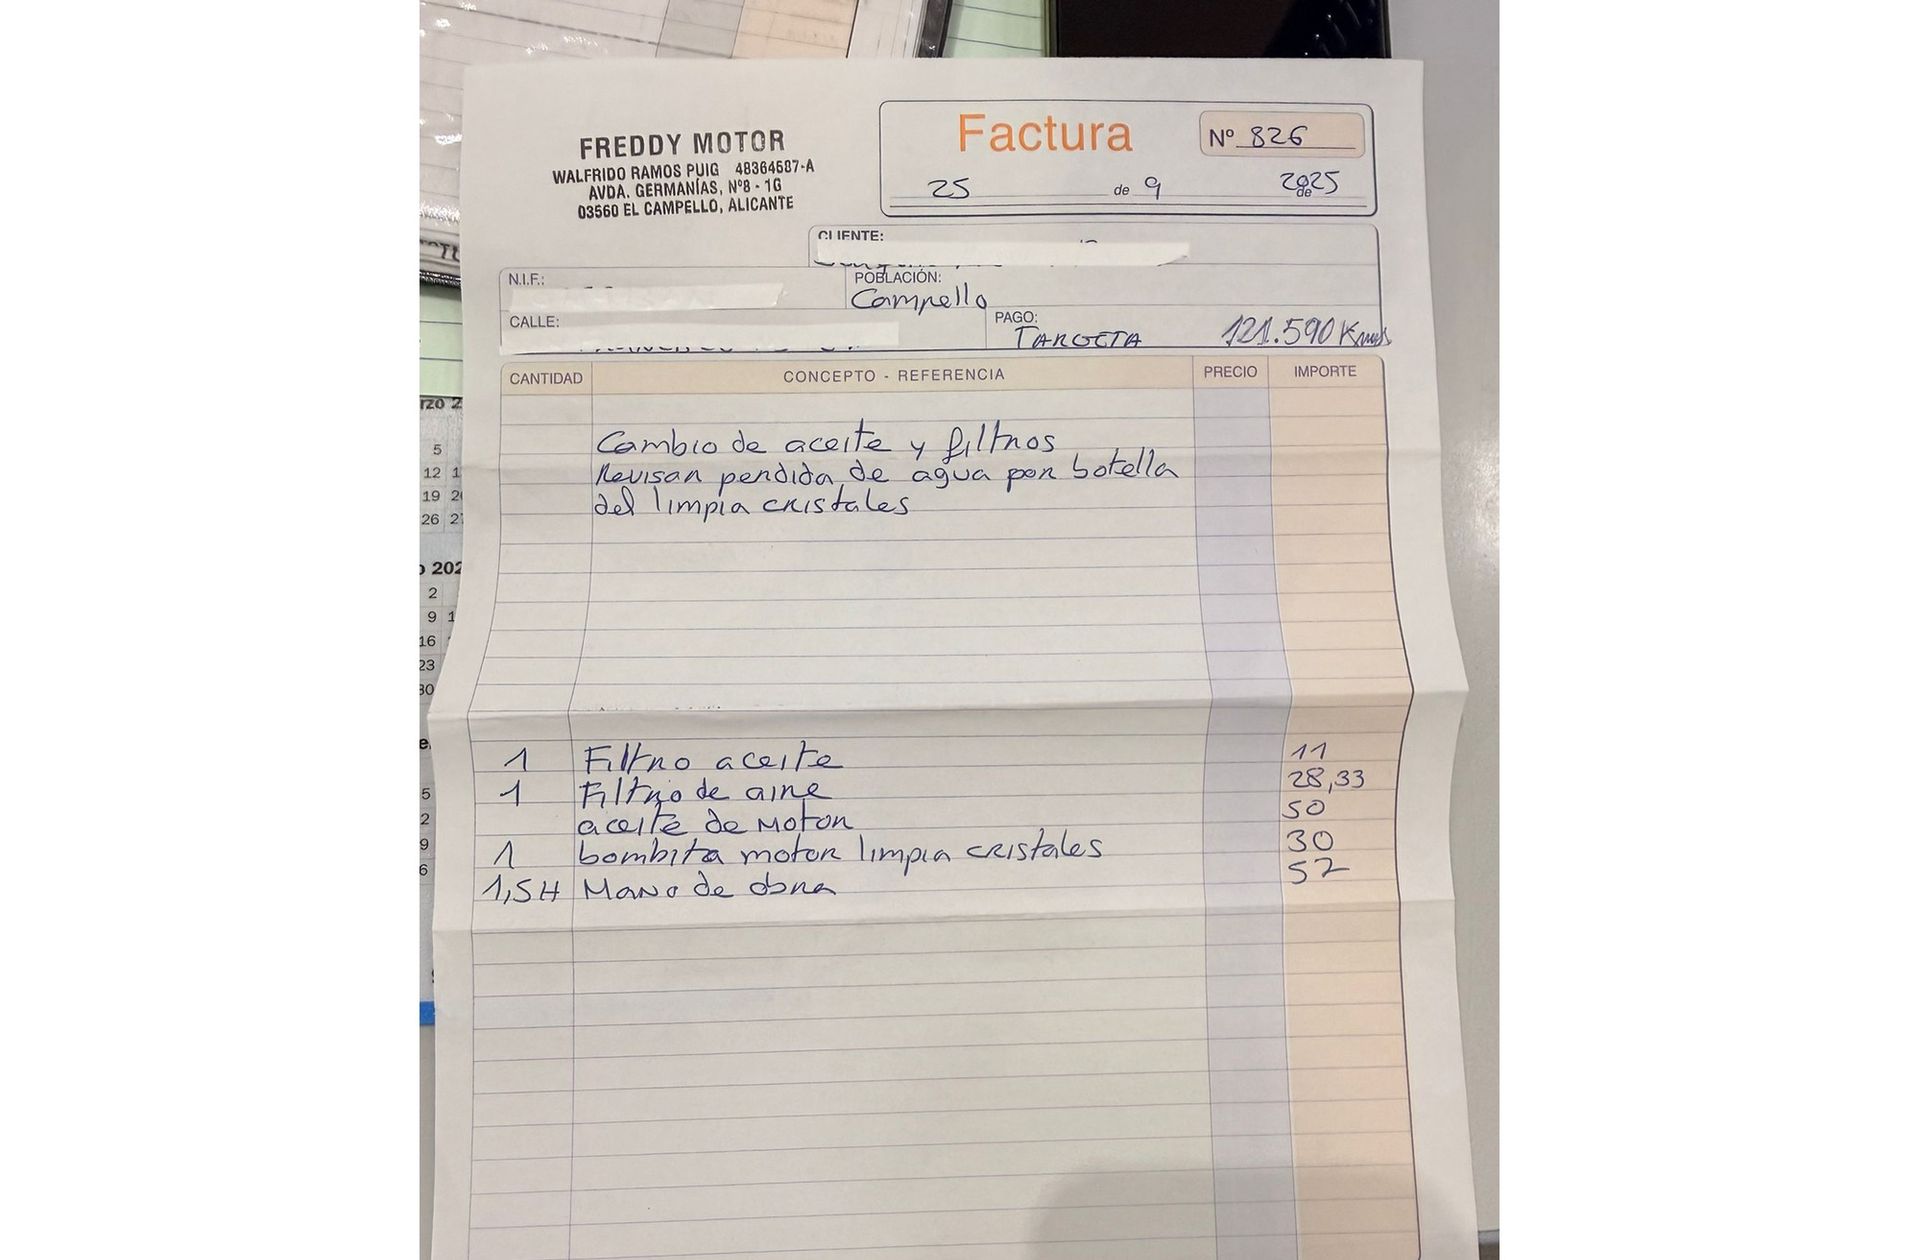 FREDDY MOTOR
WALFRIDO RAMOS PUIG 48364587-A
AVDA. GERMANÍAS, Nº8 - 1G
03560 EL CAMPELLO, ALICANTE
Factura
Nº 826
25 de 9 de 2025
CLIENTE:
N.I.F.:
POBLACIÓN:
Campello
CALLE:
PAGO:
TARGETA 121.590 Kms
CANTIDAD CONCEPTO - REFERENCIA PRECIO IMPORTE
Cambio de aceite y filtros
Revisar perdida de agua por botella
del limpia cristales
1 Filtro aceite 11
1 Filtro de aire 28,33
aceite de Motor 50
1 bombita motor limpia cristales 30
1,5H Mano de obra 57
5
12 1
19 2
26 2
202
2
9 1
16
23
30
5
2
9
6